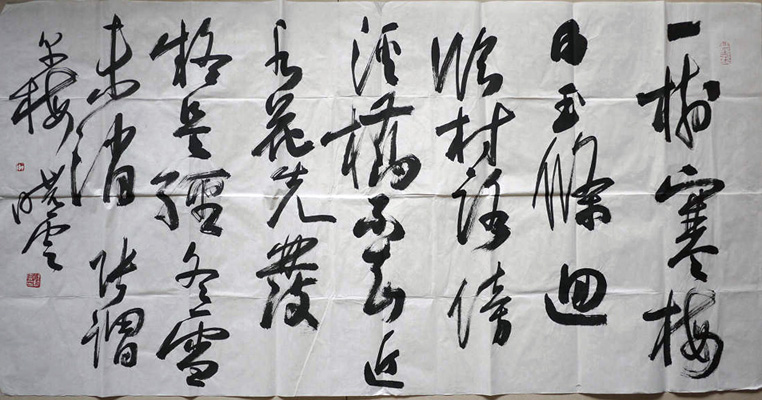 一樹寒梅
白玉條迴
臨村路傍
溪橋不知近
水花先發
疑是經冬雪
未消 張謂
早梅 曉雲